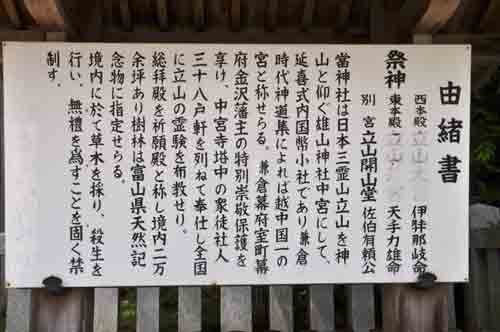 由緒書
祭神
西本殿 立山大 伊弉那岐命
東本殿 立山 天手力雄命
別宮 立山開山堂 佐伯有頼公
當神社は日本三霊山立山を神
山と仰ぐ雄山神社中宮にして、
延喜式内国幣小社であり鎌倉
時代神道集によれば越中国一の
宮と称せらる。鎌倉幕府室町幕
府金沢藩主の特別崇敬保護を
享け、中宮寺塔中の衆徒社人
三十八戸軒を列ねて奉仕し全国
に立山の霊験を布教せり。
総拝殿を祈願殿と称し境内二万
余坪あり樹林は富山県天然記
念物に指定せらる。
境内に於て草木を採り、殺生を
行い、無禮を爲すことを固く禁
制す。